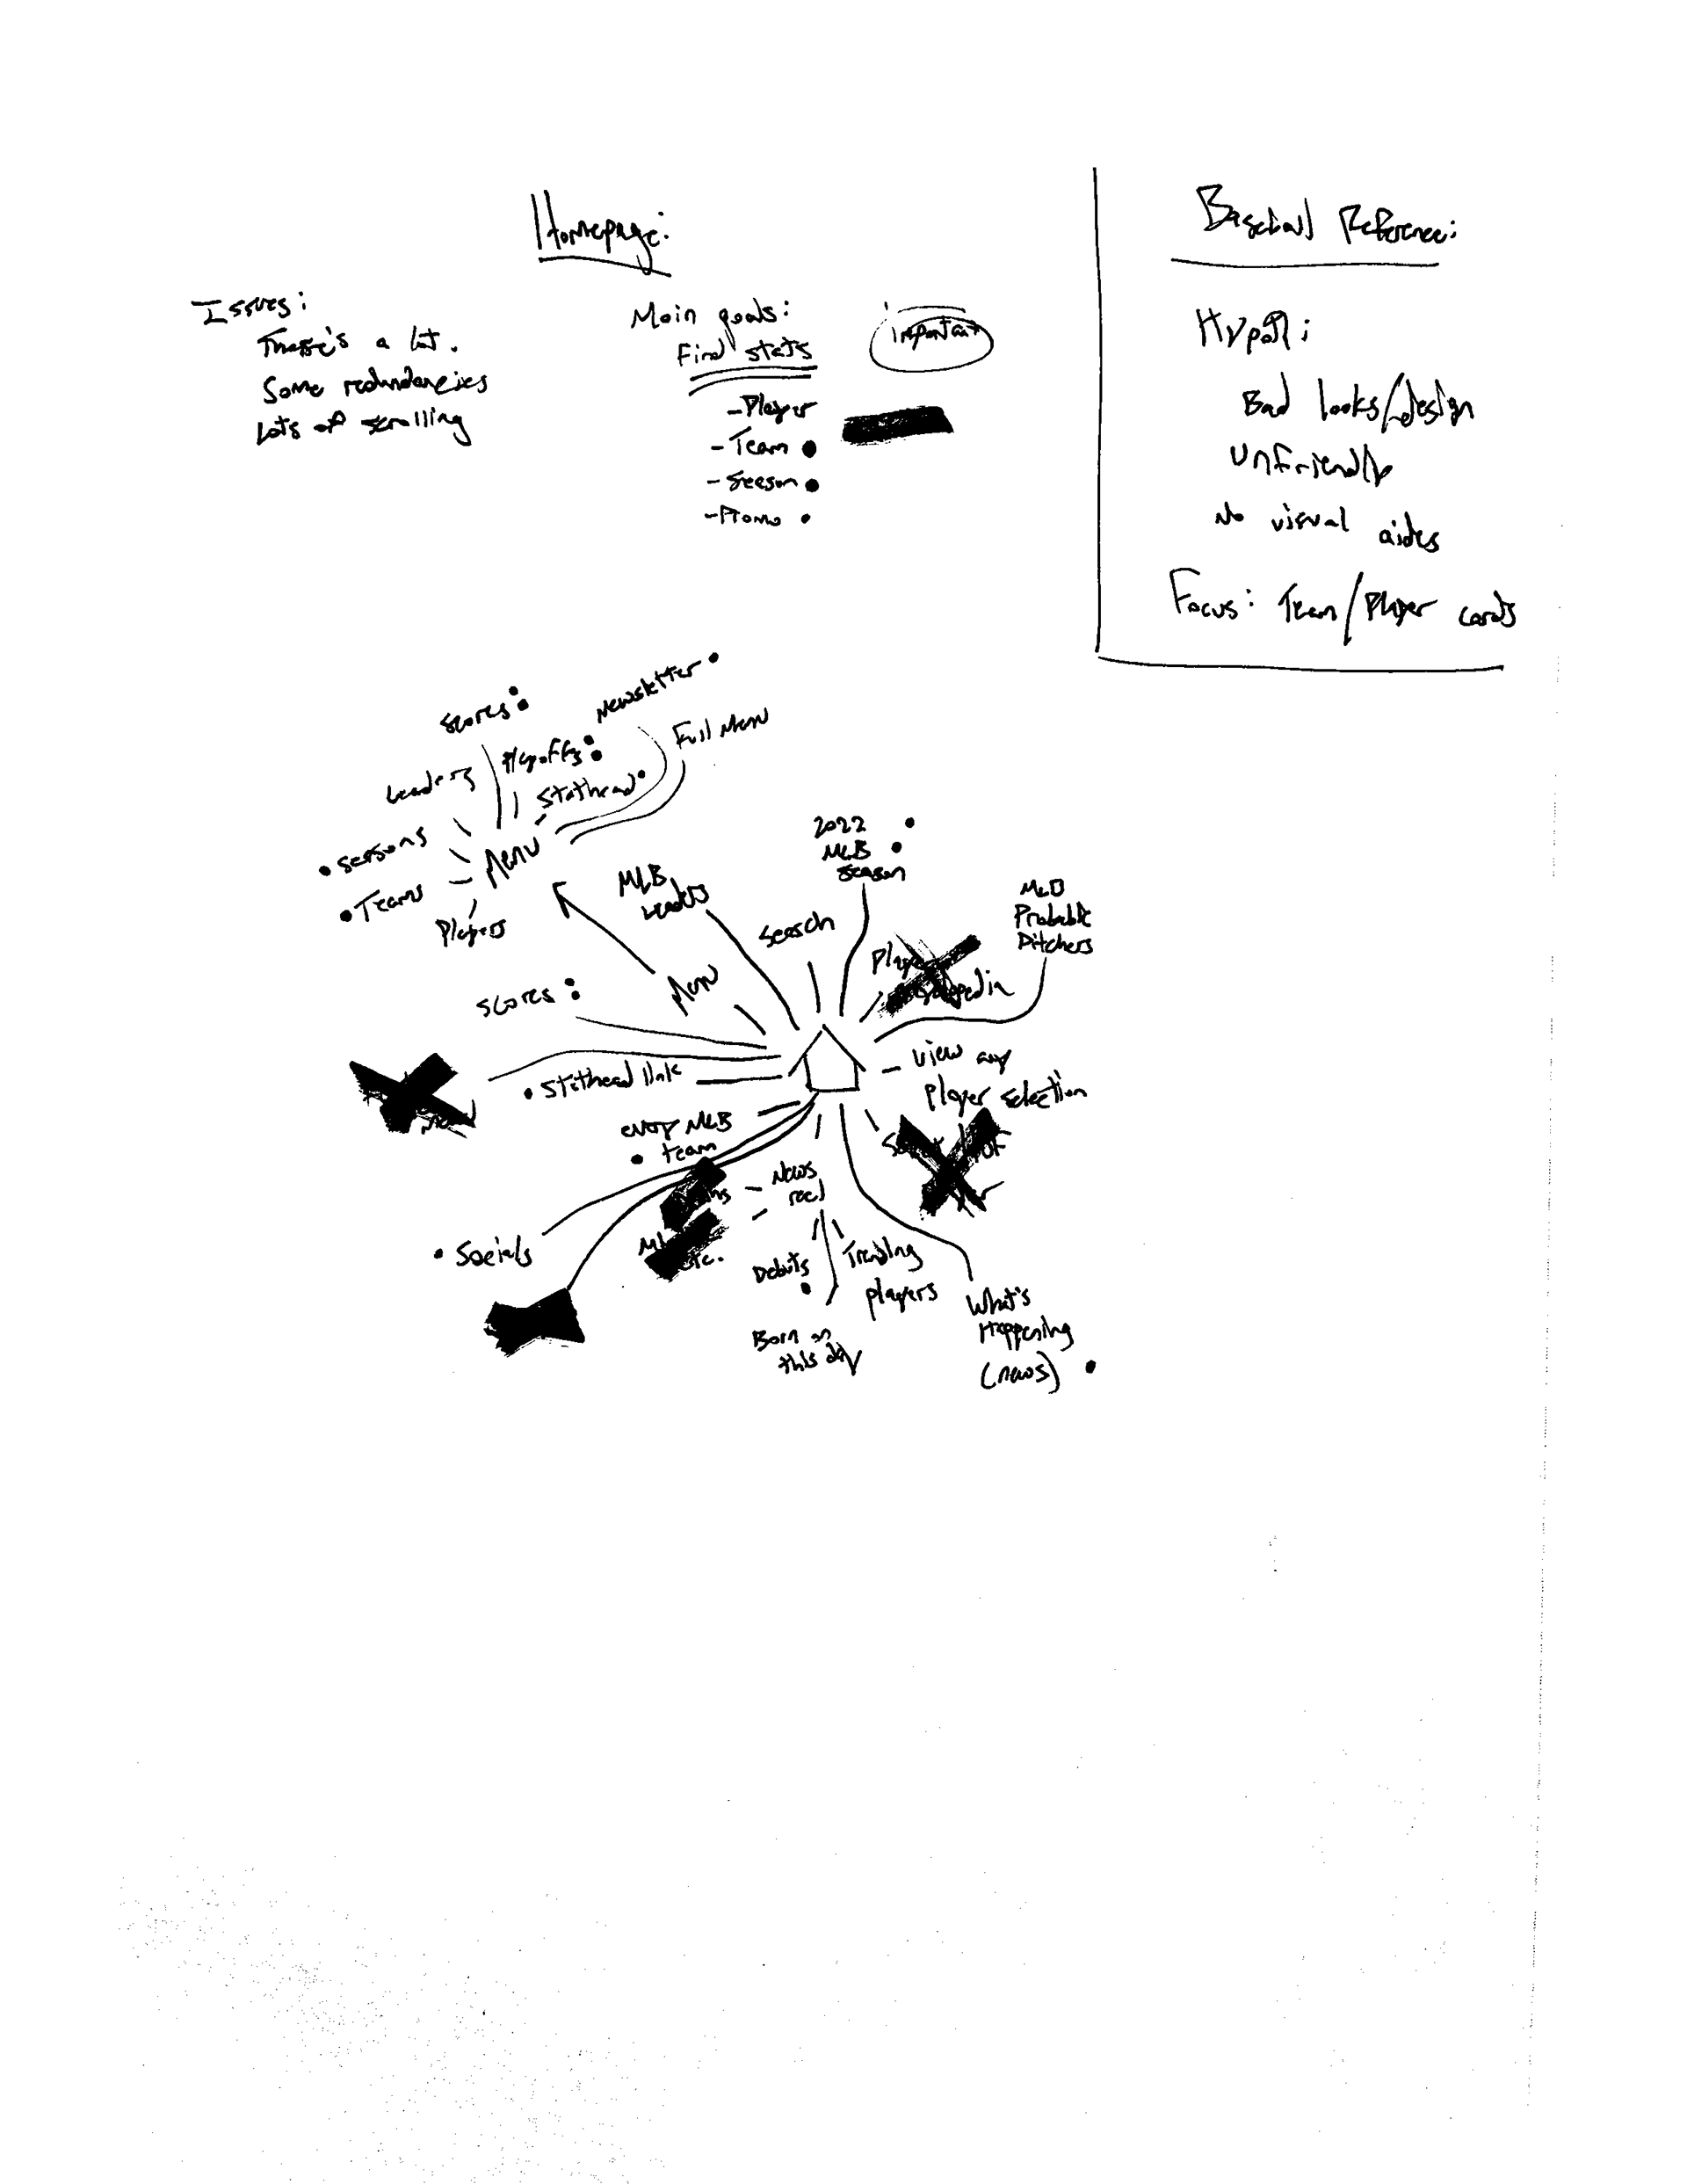 Homepage:
Issues:
There's a lot.
Some redundancies
Lots of scrolling
Main goals:
Find stats
- Player
- Team
- Season
- Promo
important
Baseball Reference:
Hypoth:
Bad looks/design
Unfriendly
No visual aides
Focus: Team/Player cards
Scores
Playoffs
Newsletter
Full Menu
Leaders
Stathead
Seasons
Teams
Players
Menu
MLB
Leaders
Search
2022
MLB
Season
MLB
Probable
Pitchers
Menu
Scores
Stathead link
every MLB
team
View any
player selection
News
reel
Socials
etc.
Debuts
Trending
players
Born on
this day
What's
Happening
(news)